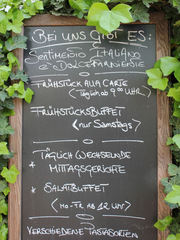 BEI UNS GIBT ES:
SENTIMENTO ITALIANO
FRÜHSTÜCK ALA CARTE
(TÄGLICH AB 9 00 UHR)
FRÜHSTÜCKSBUFFET
(NUR SAMSTAGS)
* TÄGLICH WECHSELNDE
MITTAGSGERICHTE
* SALATBUFFET
(MO-FR AB 12 UHR)
VERSCHIEDENE PASTASORTEN